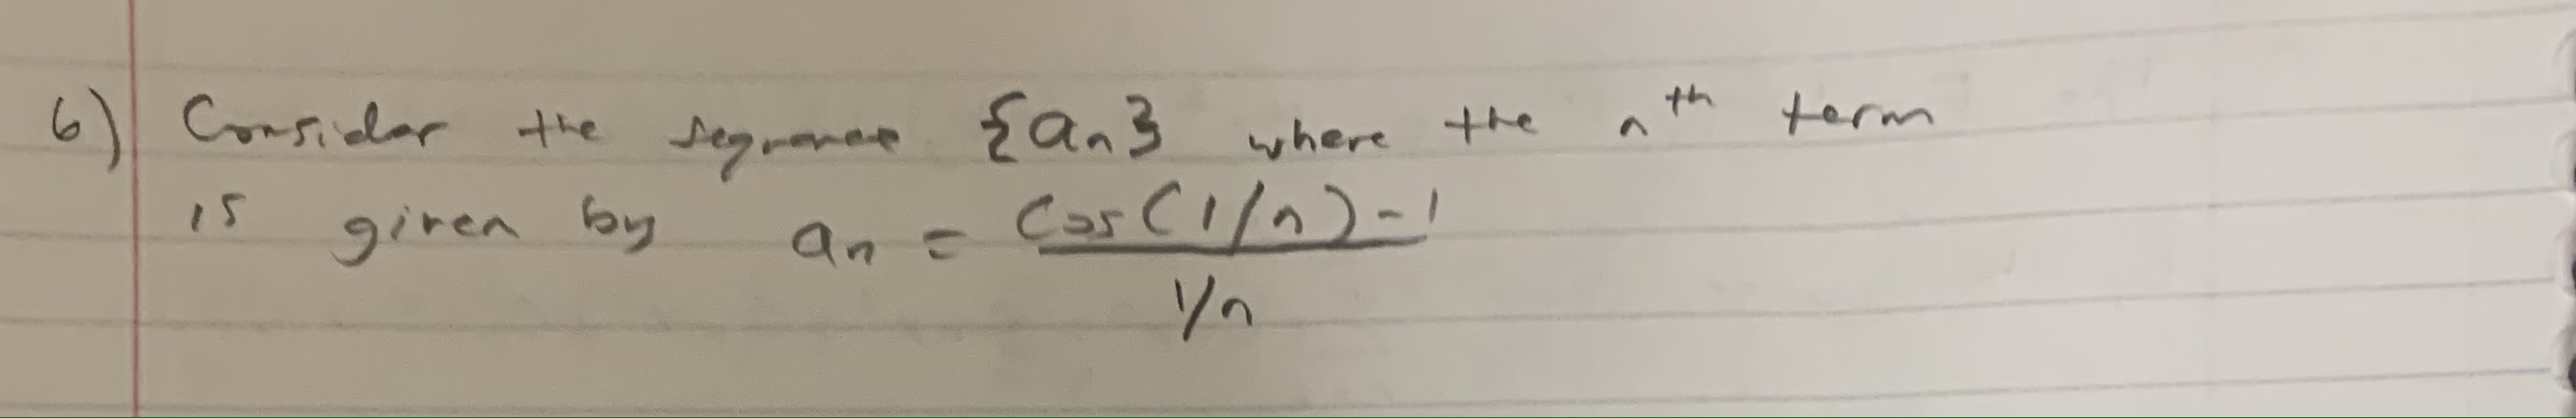 6) Consider the sequence {aₙ} where the nᵗʰ term
is given by aₙ = (cos(1/n) - 1) / (1/n)